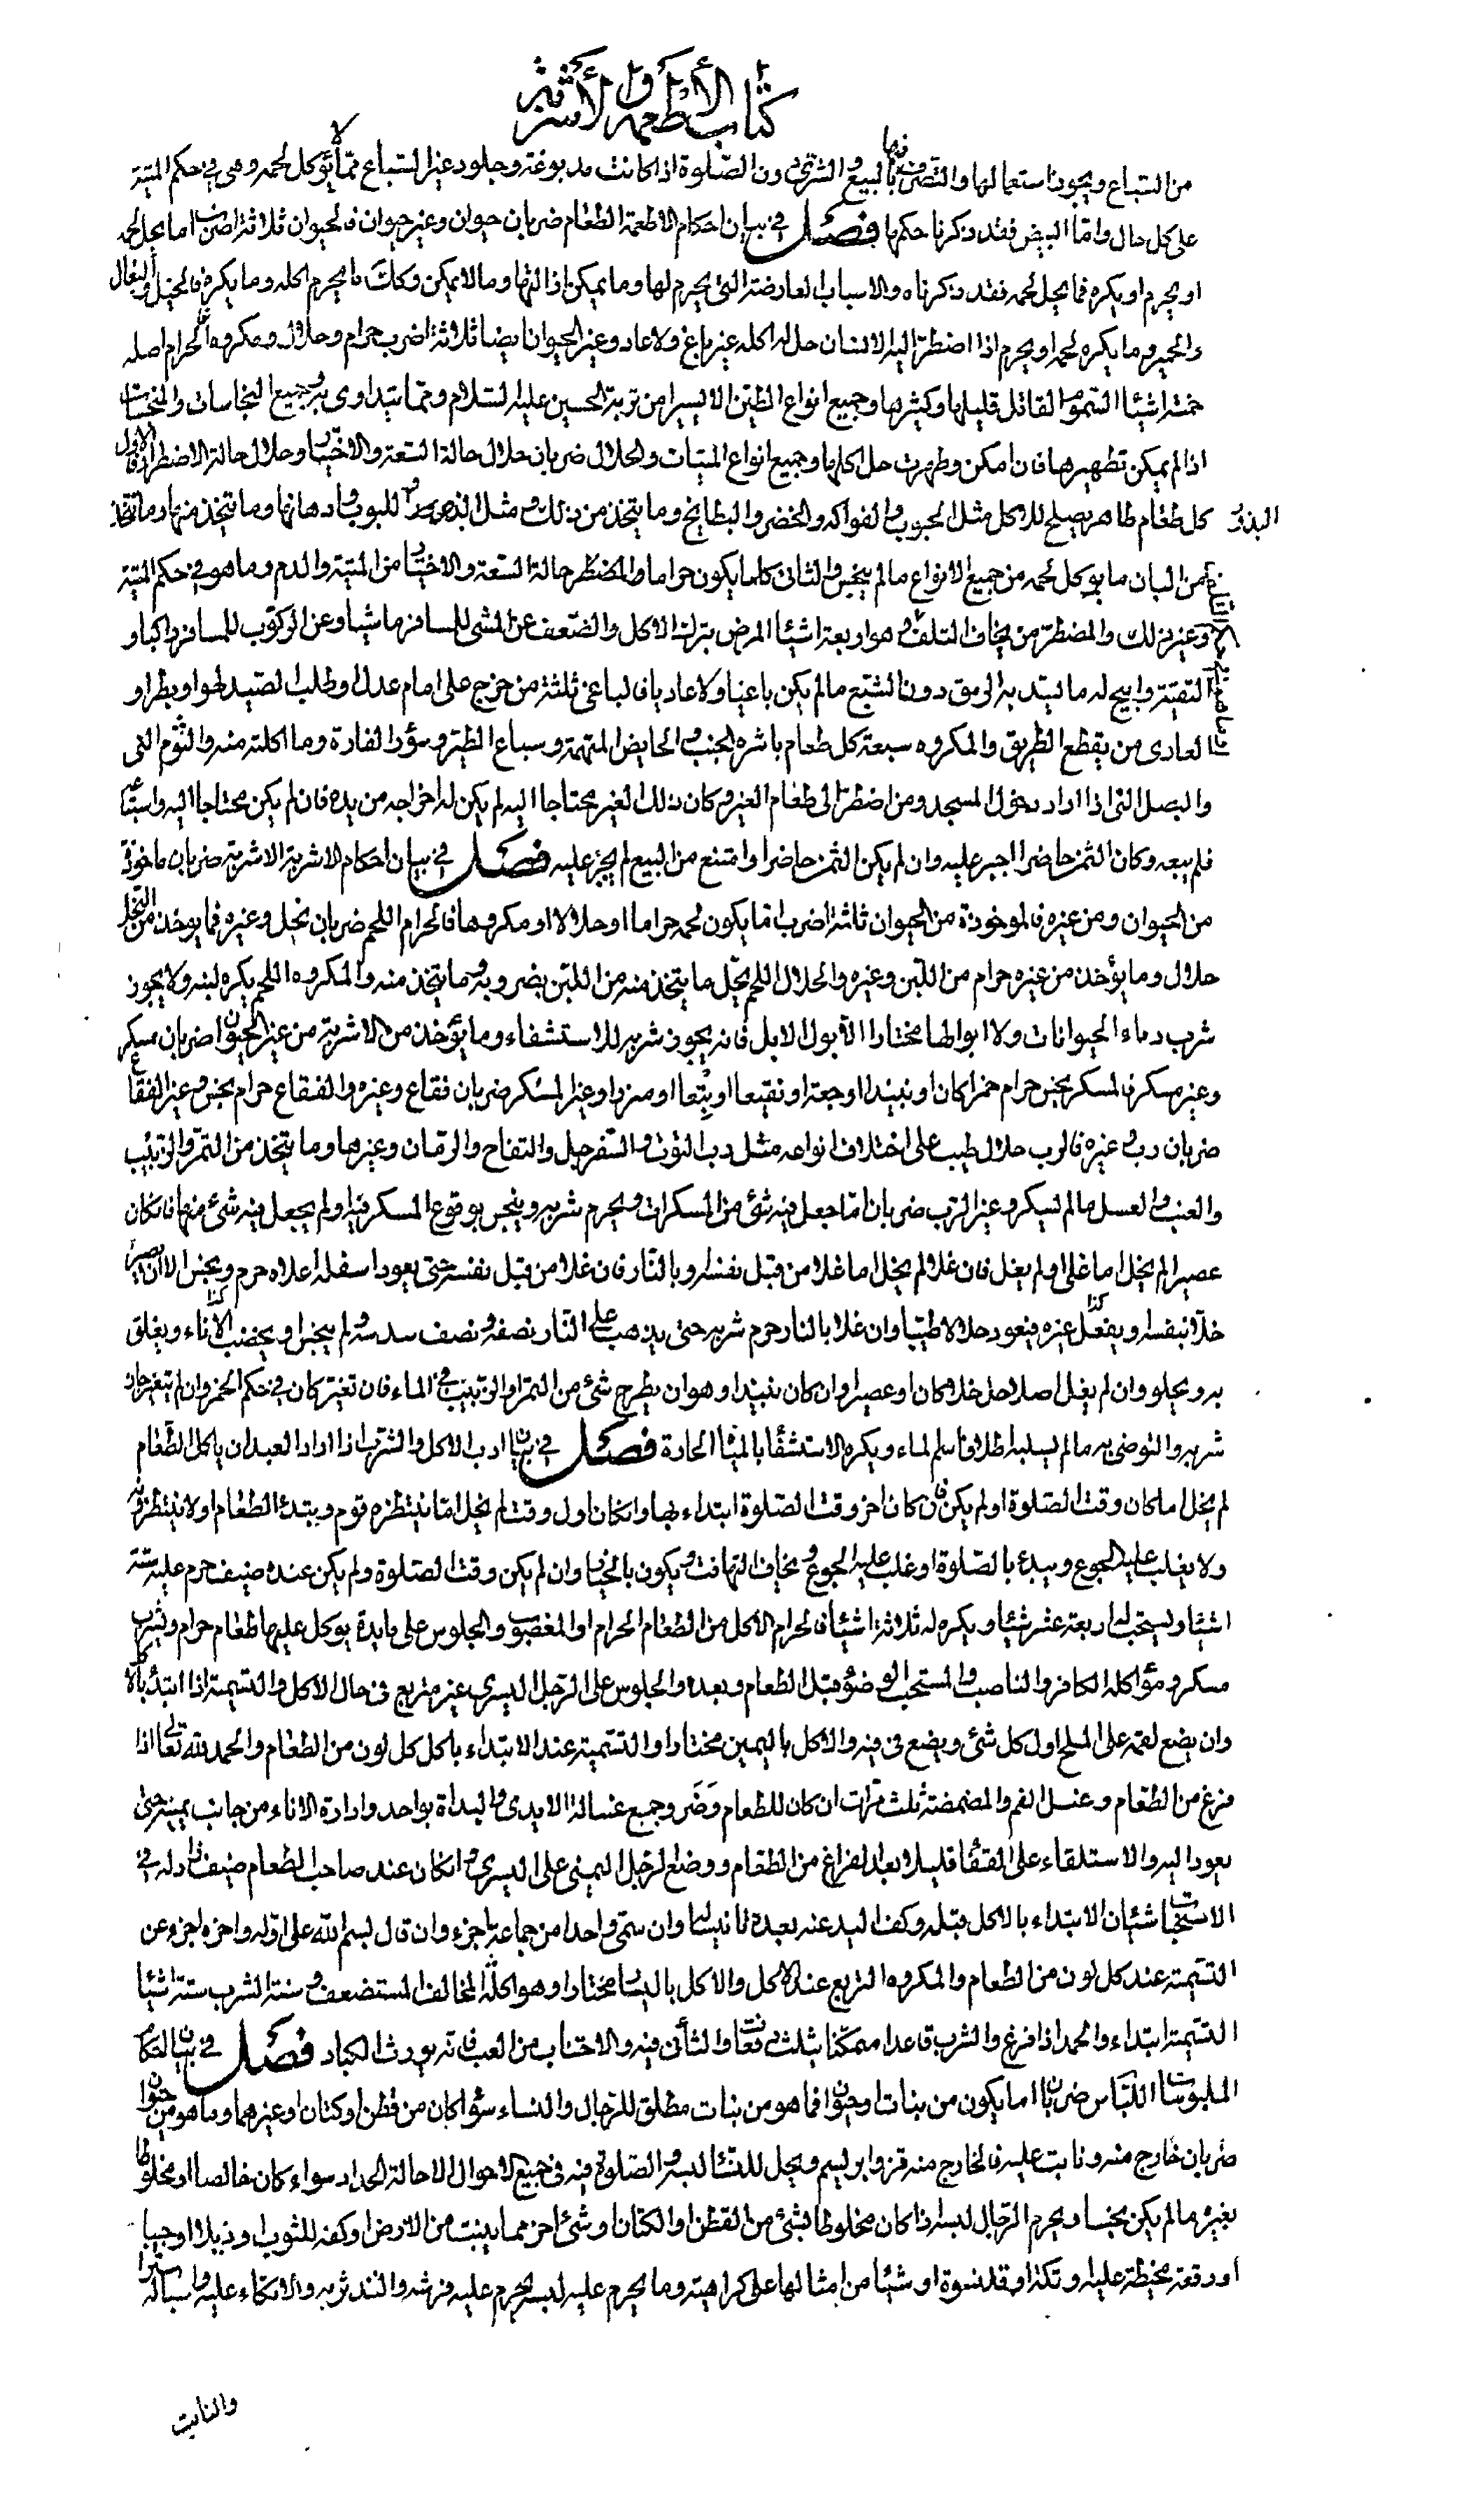 كتاب الأطعمة والأشربة
من السباع ويجوز استعمالها والتصرف فيها بالبيع والشرى دون الصلوة اذا كانت مدبوغة وجلود غير السباع مما لا يؤكل لحمه وهى فى حكم الميتة
على كل حال واما البيض فقد ذكرنا حكمها فصل فى بيان احكام الاطعمة الطعام ضربان حيوان وغير حيوان فالحيوان ثلاثة اضرب اما يحل لحمه
او يحرم او يكره فما يحل لحمه فقد ذكرناه والاسباب العارضة التى يحرم لها وما يمكن ازالتها وما لا يمكن وكذلك ما يحرم اكله وما يكره فالخيل والبغال
والحمير وما يكره لحمه او يحرم اذا اضطر اليه الانسان حل له اكله غير باغ ولا عاد وغير الحيوان ايضا ثلاثة اضرب حرام وحلال ومكروه فالحرام اصله
خمسة اشياء السموم القاتل قليلها وكثيرها وجميع انواع الطين الا اليسير من تربة الحسين عليه السلام ومما يتداوى به وجميع النجاسات والنجسات
اذا لم يمكن تطهيرها فان امكن وطهرت حل اكلها وجميع انواع الميتات والحلال ضربان حلال حالة السعة والاختيار وحلال حالة الاضطرار فالاول
كل طعام طاهر يصلح للاكل مثل الحبوب والفواكه والخضر والبطايخ وما يتخذ من ذلك ومثل البذور للبوب وادهانها وما يتخذ منها وما يتخذ
البذور
من البان ما يوكل لحمه من جميع الانواع ما لم ينجس والثانى كلما يكون حراما والمضطر حالة السعة والاختيار من الميتة والدم وما هو فى حكم الميتة
وغير ذلك والمضطر من يخاف التلف وهو اربعة اشياء المرض بترك الاكل والضعف عن المشى للمسافر ماشيا وعن الركوب للمسافر راكبا و
التقية وابيح له ما يسد به الرمق دون الشبع ما لم يكن باغيا ولا عاديا فالباغى ثلثة من خرج على امام عدل او طلب الصيد لهوا وبطرا و
العادى من يقطع الطريق والمكروه سبعة كل طعام باشره الجنب والحايض المتهمة وسباع الطير وسؤر الفارة وما اكلته منه والثوم النى
والبصل النى اذا اراد دخول المسجد ومن اضطر الى طعام الغير وكان ذلك الغير محتاجا اليه لم يكن له اخراجه من يده فان لم يكن محتاجا اليه واستباعه
فلم يبعه وكان الثمن حاضرا اجبر عليه وان لم يكن الثمن حاضرا وامتنع من البيع لم يجبر عليه فصل فى بيان احكام الاشربة الاشربة ضربان ماخوذة
من الحيوان ومن غيره فالموخوذة من الحيوان ثلثة اضرب اما يكون لحمه حراما او حلالا او مكروها فالحرام اللحم ضربان نحل وغيره فما يوخذ من النحل
حلال وما يؤخذ من غيره حرام من اللبن وغيره والحلال اللحم يحل ما يتخذ منه من اللبن بضروبه وما يتخذ منه والمكروه اللحم يكره لبنه ولا يجوز
شرب دماء الحيوانات ولا ابوالها مختارا الا بول الابل فانه يجوز شربه للاستشفاء وما يؤخذ من الاشربة من غير الحيوان ضربان مسكر
وغير مسكر فالمسكر نجس حرام خمرا كان او نبيذا او جعة او نقيعا او بتعا او مزرا وغير المسكر ضربان فقاع وغيره والفقاع حرام نجس وغير الفقاع
ضربان رب وغيره فالرب حلال طيب على اختلاف انواعه مثل رب التوت والسفرجل والتفاح والرمان وغيرها وما يتخذ من التمر والزبيب
والعنب والعسل ما لم يسكر وغير الرب ضربان اما جعل فيه شئ من المسكرات ويحرم شربه وينجس بوقوع المسكر فيه او لم يجعل فيه شئ منها فان كان
عصيرا لم يخل اما غلى او لم يغل فان غلا لم يخل اما غلا من قبل نفسه او بالنار فان غلا من قبل نفسه حتى يعود اسفله اعلاه حرم ونجس الا ان يصير
خلا بنفسه او بفعل غيره فيعود حلالا طيبا وان غلا بالنار حرم شربه حتى يذهب على النار نصفه ونصف سدسه ولم ينجس او يخضب الاناء ويعلق
به ويحلو وان لم يغل اصلا حل خلا كان او عصيرا وان كان نبيذا وهو ان يطرح شئ من التمر او الزبيب فى الماء فان تغير كان فى حكم الخمر وان لم يتغير جاز
شربه والتوضى به ما لم يسلبه اطلاق اسم الماء ويكره الاستشفاء بالمياه الحارة فصل فى بيان ادب الاكل والشرب اذا اراد العبد ان ياكل الطعام
لم يخل اما كان وقت الصلوة او لم يكن فان كان اخر وقت الصلوة ابتداء بها وان كان اول وقت لم يخل اما ينتظره قوم ويبتدئ الطعام او لا ينتظرونه
ولا يغلب عليه الجوع ويبدء بالصلوة او غلب عليه الجوع ويخاف التهافت ويكون بالخيار وان لم يكن وقت الصلوة ولم يكن عنده ضيف حرم عليه ستة
اشياء ويستحب له اربعة عشر شيئا ويكره له ثلاثة اشياء فالحرام الاكل من الطعام الحرام او المغصوب والجلوس على مايدة يوكل عليها طعام حرام ويشرب
مسكر ومؤاكله الكافر والناصب والمستحب الوضوء قبل الطعام وبعده والجلوس على الرجل اليسرى غير متربع فى حال الاكل والتسمية اذا ابتدء بالاكل
وان يضع لقمه على الملح اول كل شئ ويضع فى فيه والاكل باليمين مختارا والتسمية عند الابتداء باكل كل لون من الطعام والحمد لله تعالى اذا
فرغ من الطعام وغسل الفم والمضمضة ثلث مرات ان كان للطعام وضر وجمع غسالة الايدى والبداة بواحد وادارة الاناء من جانب يمينه حتى
يعود اليه والاستلقاء على القفا قليلا بعد الفراغ من الطعام ووضع الرجل اليمنى على اليسرى وان كان عند صاحب الطعام ضيف زاد له فى
الاستحباب شيئان الابتداء بالاكل قبله وكف اليد عنه بعده تانيسا له وان سمى واحد من جماعة اجزء وان قال بسم الله على اوله واخره اجزء عن
التسمية عند كل لون من الطعام والمكروه التربع عند الاكل والاكل باليسار مختارا ومواكلة المخالف المستضعف وسنة الشرب ستة اشياء
التسمية ابتداء والحمد اذا فرغ والشرب قاعدا ممكنا بثلث دفعات والتأنى فيه والاجتناب من العب فانه يورث الكباد فصل فى بيان احكام
الملبوسات اللباس ضربان اما يكون من نبات او حيوان فما هو من نبات مطلق للرجال والنساء سواء كان من قطن او كتان او غيرهما وما هو من حيوان
ضربان خارج منه ونابت عليه فالخارج منه قز وابريسم ويحل للنساء لبسه والصلوة فيه فى جميع الاحوال الا حالة الحداد سواء كان خالصا او مخلوطا
بغيره ما لم يكن نجسا ويحرم الرجال لبسه اذا كان مخلوطا بشئ من القطن او الكتان او شئ اخر مما ينبت من الارض او كفه للثوب او ذيلا او جيبا
او رقعة مخيطة عليه وتكة او قلنسوة او شيئا من امثالها على كراهية وما يحرم عليه لبسه يحرم عليه فرشه والتدثر به والاتكاء عليه واسباله سترا
والنابت